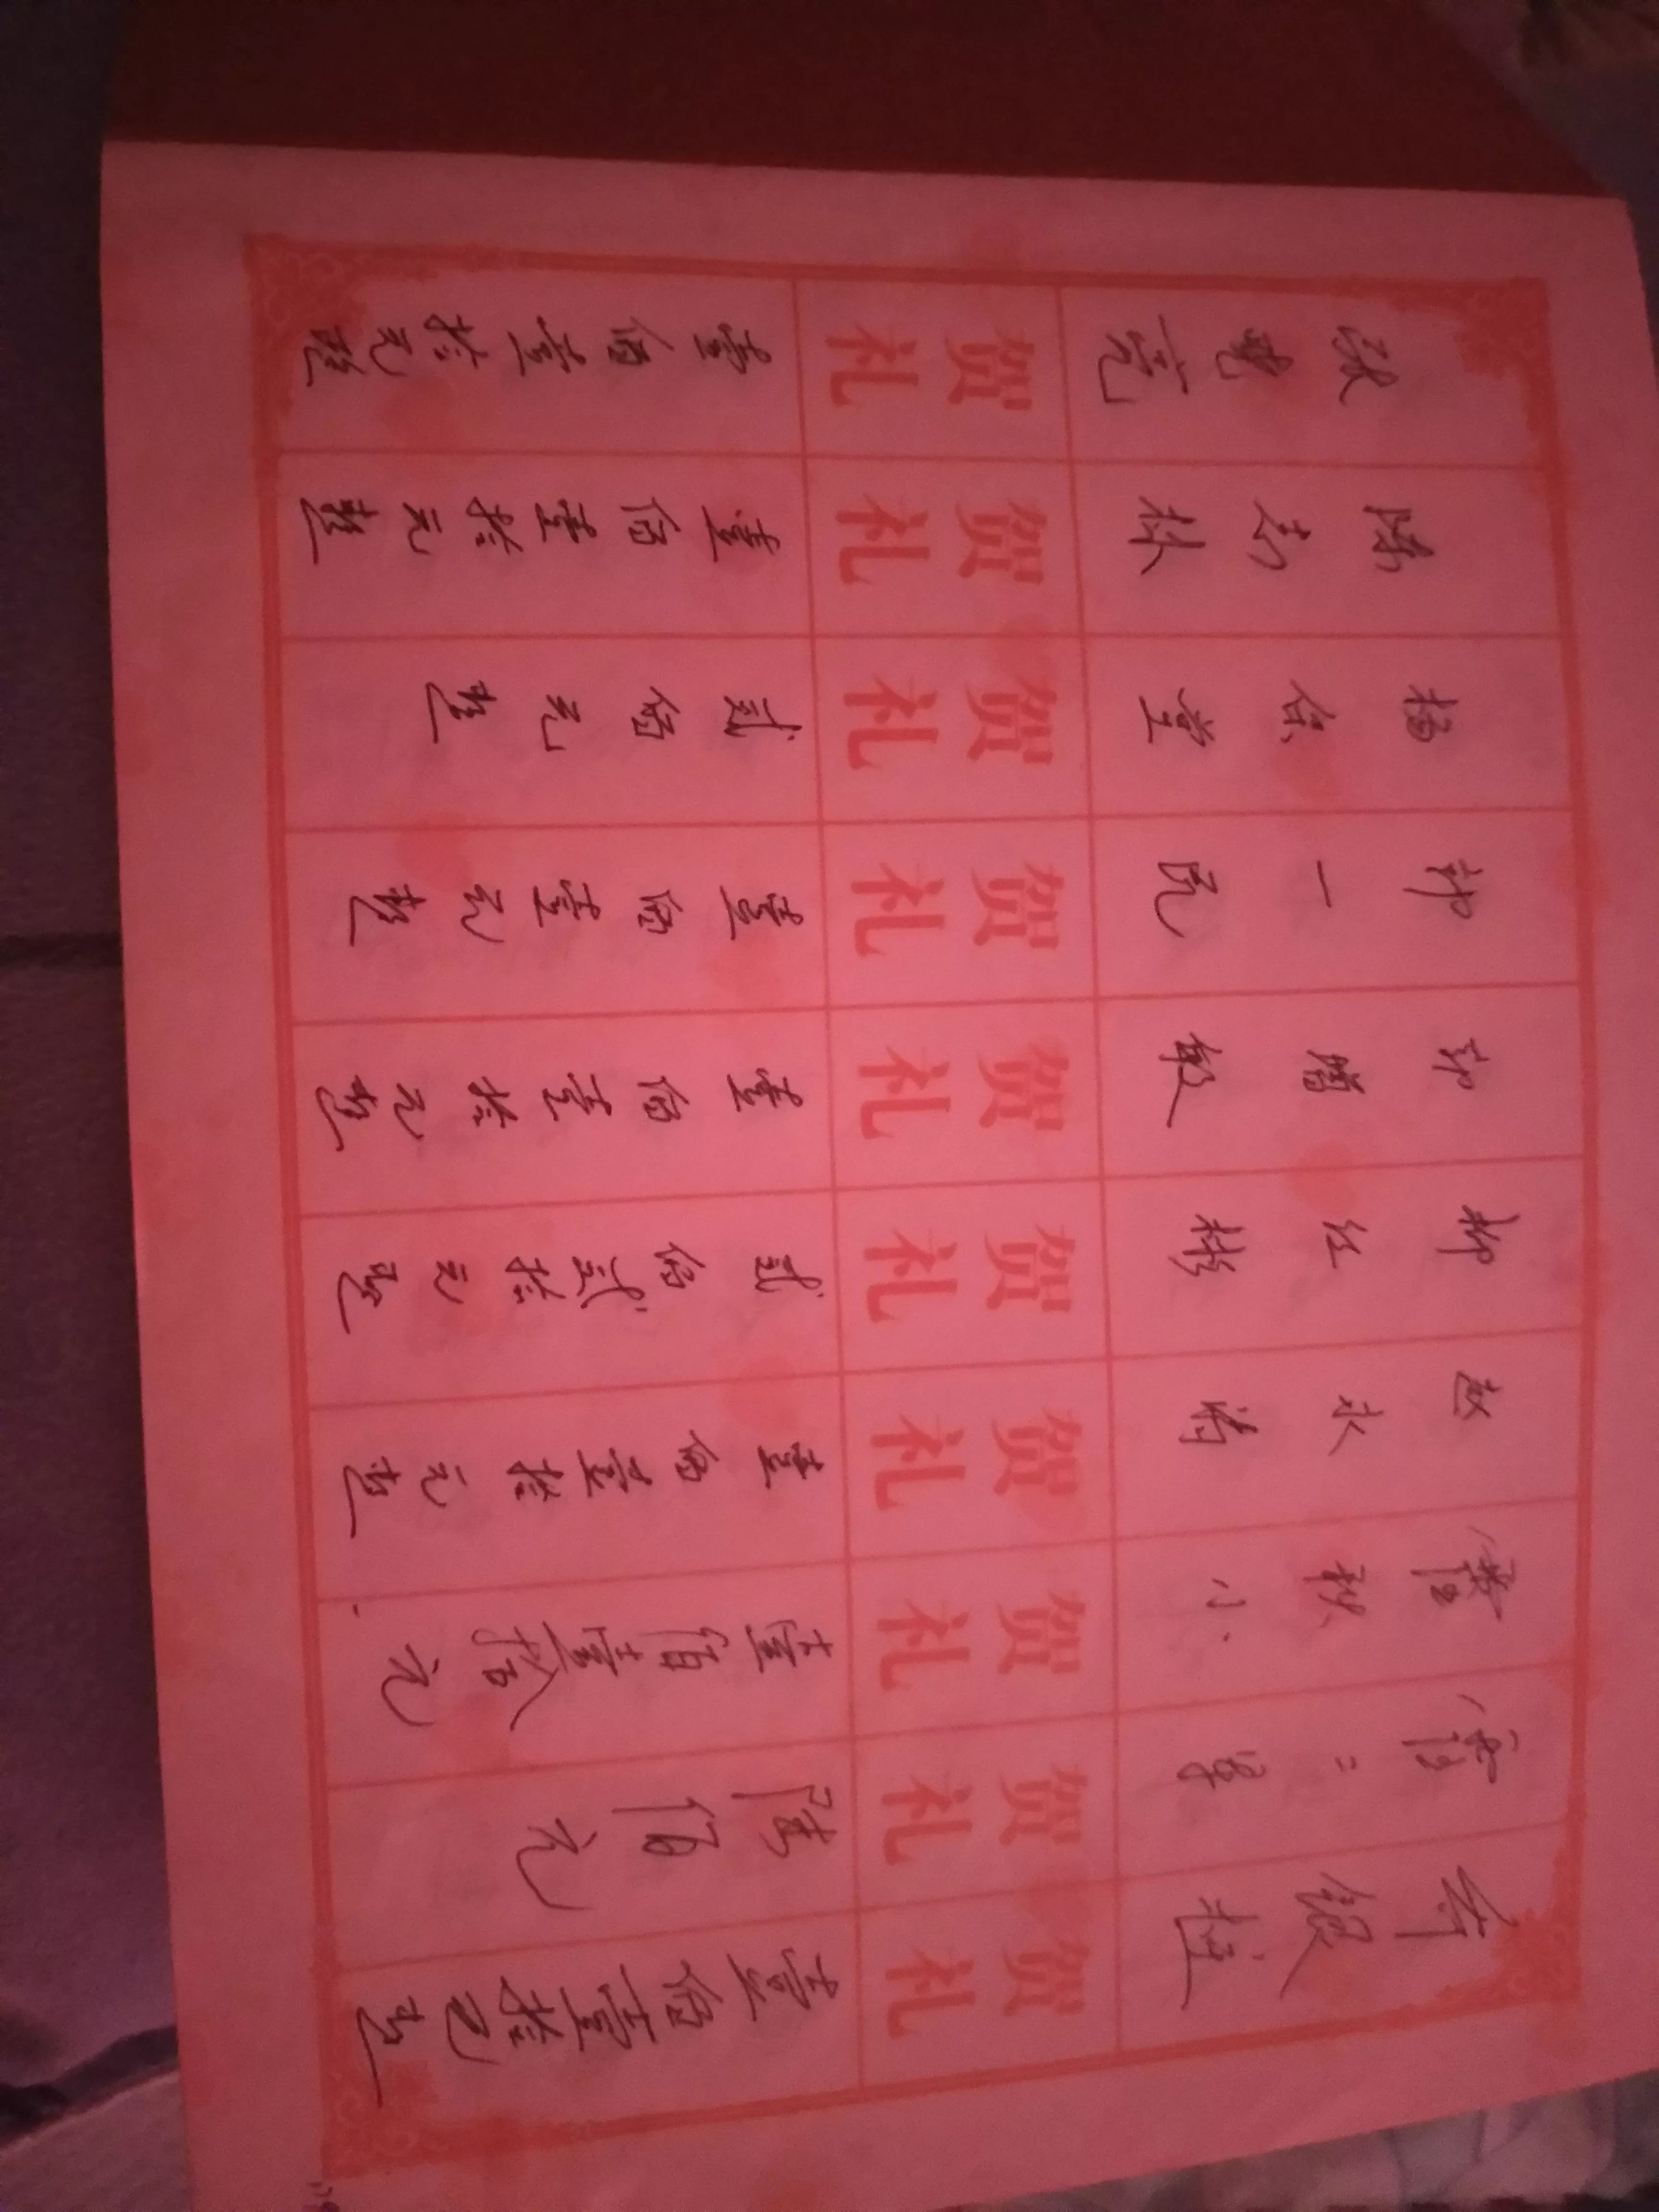 银柱 贺礼 壹佰壹拾元整
霍二 贺礼 陆佰元
霍秋小 贺礼 壹佰壹拾元
赵永 贺礼 壹佰壹拾元整
柳红彬 贺礼 贰佰贰拾元整
敏 贺礼 壹佰壹拾元整
一民 贺礼 壹佰壹元整
杨堂 贺礼 贰佰元整
陈志林 贺礼 壹佰壹拾元整
张亮 贺礼 壹佰壹拾元整